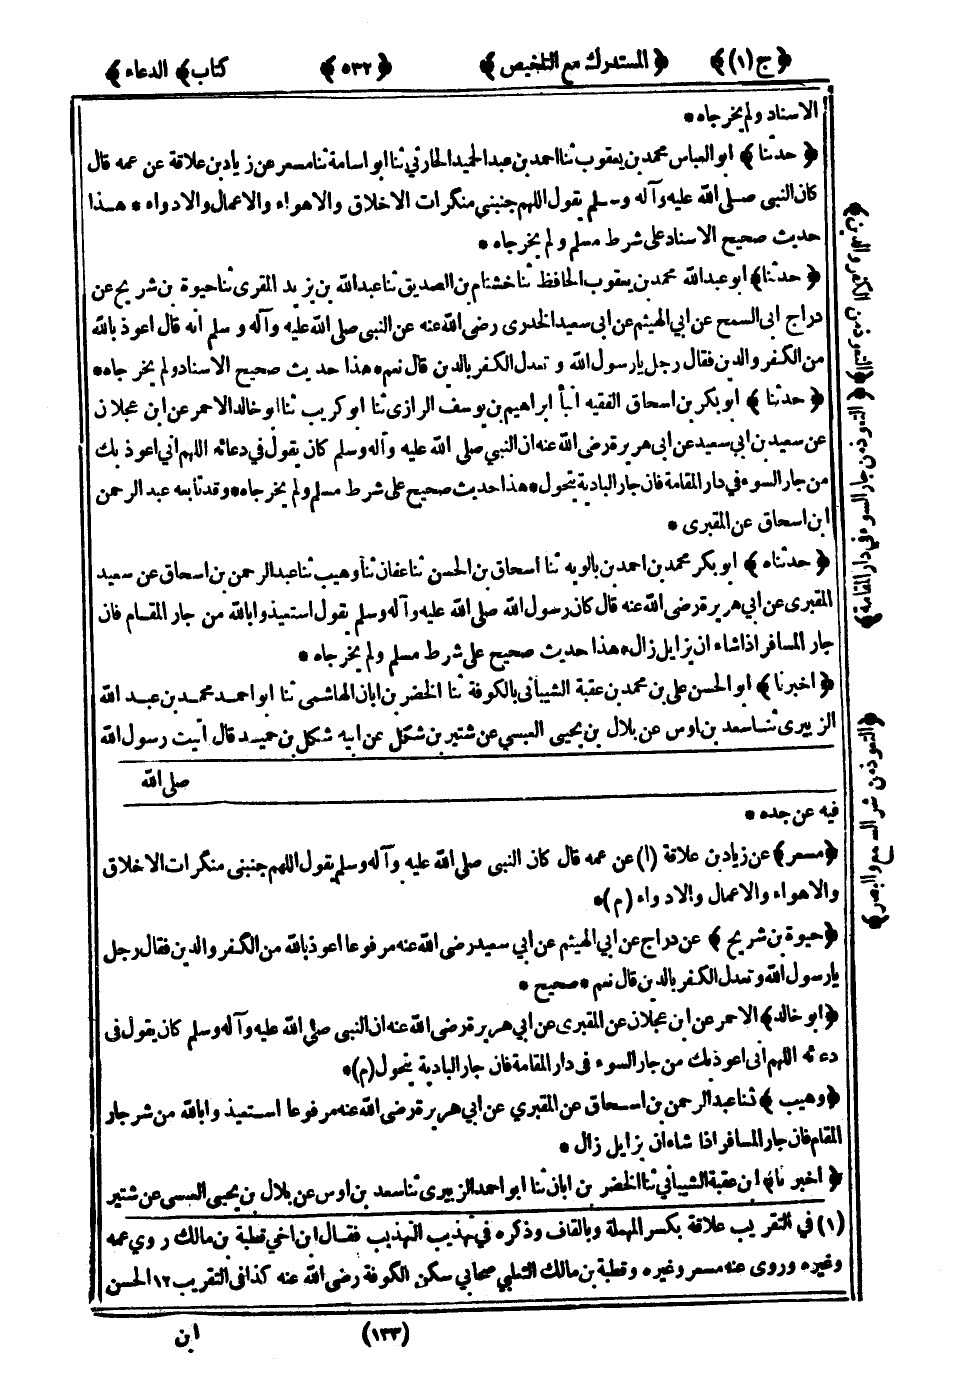 ﴿ ج (١) ﴾ ﴿ المستدرك مع التلخيص ﴾ ﴿ ٥٣٢ ﴾ ﴿ كتاب ﴾ الدعاء ﴾
الاسناد ولم يخرجاه *
﴿ حدثنا ﴾ ابو العباس محمد بن يعقوب ثنا احمد بن عبد الحميد الحارثي ثنا ابو اسامة ثنا مسعر عن زياد بن علاقة عن عمه قال
كان النبي صلى الله عليه وآله وسلم يقول اللهم جنبني منكرات الاخلاق والاهواء والاعمال والادواء * هذا
حديث صحيح الاسناد على شرط مسلم ولم يخرجاه *
﴿ حدثنا ﴾ ابو عبد الله محمد بن يعقوب الحافظ ثنا خشنام بن الصديق ثنا عبد الله بن يزيد المقرى ثنا حيوة بن شريح عن
دراج ابى السمح عن ابي الهيثم عن ابى سعيد الخدرى رضى الله عنه عن النبى صلى الله عليه وآله وسلم انه قال اعوذ بالله
من الكفر والدين فقال رجل يا رسول الله وتعدل الكفر بالدين قال نعم * هذا حديث صحيح الاسناد ولم يخرجاه *
﴿ حدثنا ﴾ ابو بكر بن اسحاق الفقيه انبأ ابراهيم بن يوسف الرازى ثنا ابو كريب ثنا ابو خالد الاحمر عن ابن عجلان
عن سعيد بن ابى سعيد عن ابى هريرة رضى الله عنه ان النبي صلى الله عليه وآله وسلم كان يقول في دعائه اللهم انى اعوذ بك
من جار السوء في دار المقامة فان جار البادية يتحول * هذا حديث صحيح على شرط مسلم ولم يخرجاه * وقد تابعه عبد الرحمن
ابن اسحاق عن المقبرى *
﴿ حدثناه ﴾ ابو بكر محمد بن احمد بن بالويه ثنا اسحاق بن الحسن ثنا عفان ثنا وهيب ثنا عبد الرحمن بن اسحاق عن سعيد
المقبرى عن ابي هريرة رضى الله عنه قال كان رسول الله صلى الله عليه وآله وسلم يقول استعيذوا بالله من جار المقام فان
جار المسافر اذا شاء ان يزايل زال * هذا حديث صحيح على شرط مسلم ولم يخرجاه *
﴿ اخبرنا ﴾ ابو الحسن على بن محمد بن عقبة الشيبانى بالكوفة ثنا الخضر بن ابان الهاشمى ثنا ابو احمد محمد بن عبد الله
الزبيرى ثنا سعد بن اوس عن بلال بن يحيى العبسي عن شتير بن شكل عن ابيه شكل بن حميد قال اتيت رسول الله
صلى الله
فيه عن جده *
﴿ مسعر ﴾ عن زياد بن علاقة (١) عن عمه قال كان النبى صلى الله عليه وآله وسلم يقول اللهم جنبنى منكرات الاخلاق
والاهواء والاعمال والادواء (م) *
﴿ حيوة بن شريح ﴾ عن دراج عن ابي الهيثم عن ابي سعيد رضى الله عنه مرفوعا اعوذ بالله من الكفر والدين فقال رجل
يارسول الله وتعدل الكفر بالدين قال نعم * صحيح *
﴿ ابو خالد ﴾ الاحمر عن ابن عجلان عن المقبرى عن ابي هريرة رضى الله عنه ان النبى صلى الله عليه وآله وسلم كان يقول فى
دعائه اللهم انى اعوذ بك من جار السوء فى دار المقامة فان جار البادية يتحول (م) *
﴿ وهيب ﴾ ثنا عبد الرحمن بن اسحاق عن المقبري عن ابي هريرة رضى الله عنه مرفوعا استعيذوا بالله من شر جار
المقام فان جار المسافر اذا شاء ان يزايل زال *
﴿ اخبرنا ﴾ ابن عقبة الشيبانى ثنا الخضر بن ابان ثنا ابو احمد الزبيرى ثنا سعد بن اوس عن بلال بن يحيى العبسى عن شتير
(١) في التقريب علاقة بكسر المهملة وبالقاف وذكره في تهذيب التهذيب فقال ابن اخي قطبة بن مالك روي عمه
وغيره وروى عنه مسعر وغيره وقطبة بن مالك الثعلبي صحابي سكن الكوفة رضى الله عنه كذا فى التقريب ١٢ الحسن
(١٣٣) ابن
﴿ التعوذ من الكفر والدين ﴾
﴿ التعوذ من جار السوء في دار المقامة ﴾
﴿ التعوذ من شر السمع والبصر ﴾